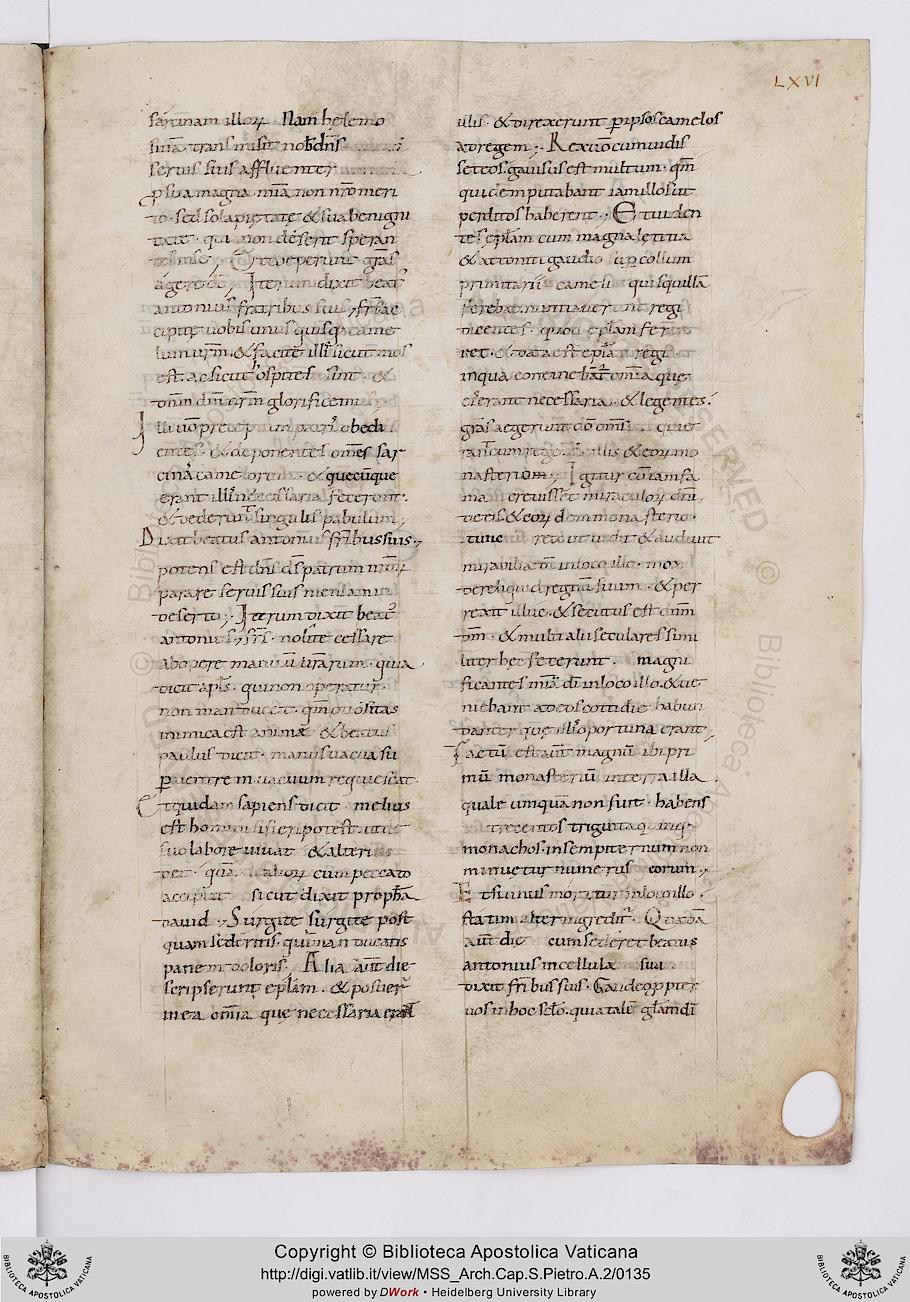 LXVI
sarcinam illoꝝ. Nam helemo
sinā transmisit nob̄ dn̄s
seruis suis affluenter
ꝓ sua magna mīa non nr̄o meri
to. sed sola pietate & sua benigni
tate. qui non deserit speran
tes in se. Et ceperunt grās
agere dō. Iterum dixit beat᾽
antonius fratribus suis, fr̄s ac
cipite uobis unusquisq; came
lum ur̄m. & facite illi sicut mos
est. ac si cut hospites sint. &
om̄n dn̄m nr̄m glorificemus.
Illi uō preceptum patris obedi
entes. & deponentes om̄s sar
cinā camelorum. & quecūque
erant illī necessaria fecerunt.
& dederunt singulis pabulum,
Dixit beatus antonius fr̄ibus suis,
potens est dn̄s ds̄ patrum nr̄oꝝ
parare seruis suis mensam in
deserto; Iterum dixit beat᾽
antonius, fr̄s. nolite cessare
ab opere manuū ur̄arum. quia
dicit apl̄s. qui non operatur
non manducet. qm̄ otiositas
inimica est animæ & beatus
paulus dicit. manus uacua su
ꝑ uentre in uacuum requiescat.
Et quidam sapiens dicit melius
est homini si fieri potest. ut de
suo labore uiuat & alteri
det. quā cum peccato
accipiat sicut dixit proph̄a
dauid, Surgite surgite post
quam sederitis. qui manducatis
panem doloris. Alia aūt die
scripserunt epl̄am. & posuer̄
in ea om̄ia que necessaria erant
illis. & direxerunt ꝑ ipsos camelos
ad regem;. Rex uō cum uidis
set eos. gauisus est multum. qm̄
quidem putabant iam illos ut
perditos haberent; Et uiden
tes epl̄am cum magna letitia
& attoniti gaudio sup collum
primitarii cameli quis quillā
ferebat. nuntiauerunt regi
dicentes. quod epl̄am fer
ret. & data est epl̄a regi
in qua contineb̄at om̄ia que
eis erant necessaria. & legentes
grās aegerunt dō om̄s. que
illis & eorū mo
nasterium; Igitur cū iam fa
ma creuisset miraculoꝝ om̄i
potens. & eoꝝdem monasterio.
tunc rex ut uidit & audiuit
mirabilia dī in loco illo. mox
dereliquid regnū suum. & per
rexit illuc. & secutus est dn̄m
dm̄. & multi alii seculares simi
liter hec fecerunt. magni
ficantes mīa dī in loco illo. & ue
niebant ad eos cottidie habun
danter que illī oportuna erant,
Factū est aūt magnū ibi pri
mū monasteriū in terra illa
quale umquā non fuit. habens
trecentos triginta quinq;
monachos. in sempiternum non
minuetur numerus eorum,
Et si unus moritur in loco illo.
statim alter ingredit᾽. Quadā
aūt die cum sederet beatus
antonius in cellula sua
dixit fr̄ibus suis. Gaudeo ꝓpter
uos in hoc sc̄lo. quia talē glām dī
Copyright © Biblioteca Apostolica Vaticana
http://digi.vatlib.it/view/MSS_Arch.Cap.S.Pietro.A.2/0135
powered by DWork • Heidelberg University Library
BIBLIOTECA APOSTOLICA VATICANA
BIBLIOTECA APOSTOLICA VATICANA